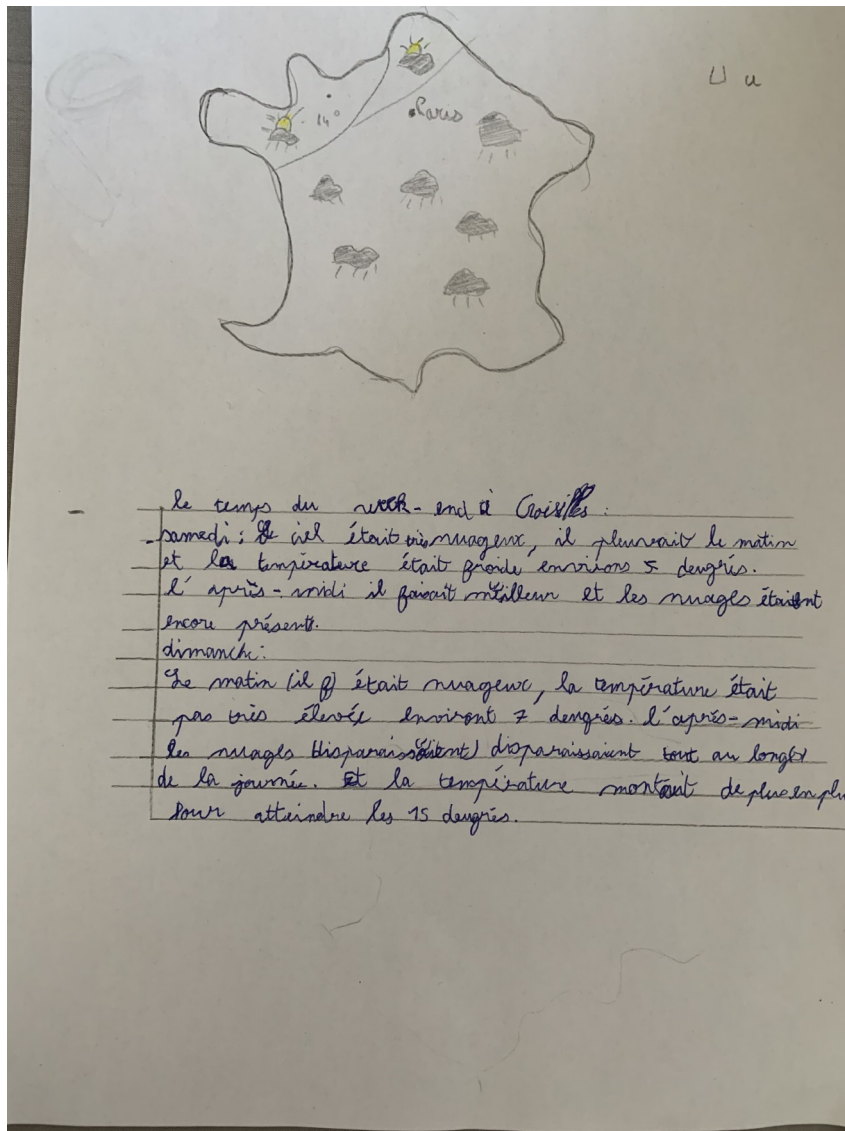 U u
14°
.Paris
le temps du week-end à Croisilles :
samedi : Le ciel était très nuageux, il pleuvait le matin
et la température était froide environs 5 dengrés.
l'après-midi il faisait meilleur et les nuages étaient
encore présent.
dimanche :
Le matin (il f) était nuageux, la température était
pas très élevée environt 7 dengrés. l'après-midi
les nuages disparaissaient) disparaissaient tout au long
de la journée. Et la température montait de plus en plu
Pour atteindre les 15 dengrés.